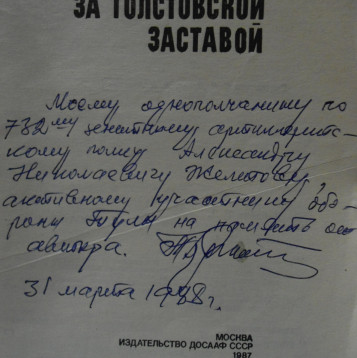 ЗА ТОЛСТОВСКОЙ
ЗАСТАВОЙ
Моему однополчанину по
732му зенитному артиллерий-
скому полку Александру
Николаевичу
активному участнику обо-
роны Тулы на память от
автора.
31 марта 1988 г.
МОСКВА
ИЗДАТЕЛЬСТВО ДОСААФ СССР
1987